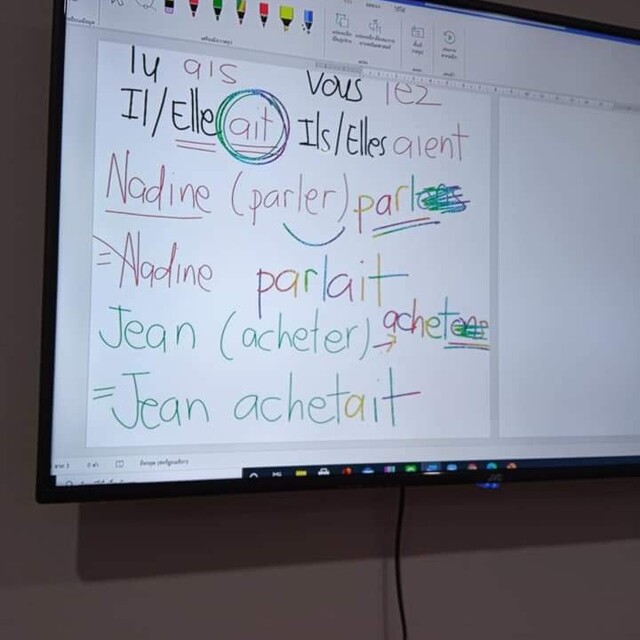 Tu ais Vous iez
Il/Elle ait Ils/Elles aient
Nadine (parler) parl
=Nadine parlait
Jean (acheter) → achet
=Jean achetait